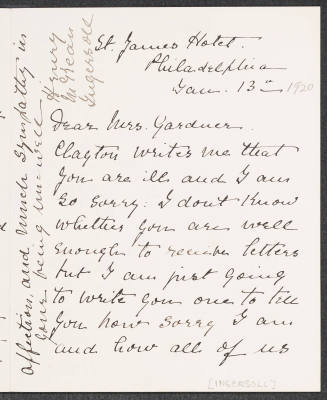 St. James Hotel.
Philadelphia
Jan. 13th 1920
Dear Mrs. Gardner.
Clayton writes me that
you are ill and I am
so sorry. I dont know
whether you are well
enough to receive letters
but I am just going
to write you one to tell
you how sorry I am
and how all of us
affection, and much sympathy in
your being un-well
Henry
McKean
Ingersoll
[INGERSOLL]